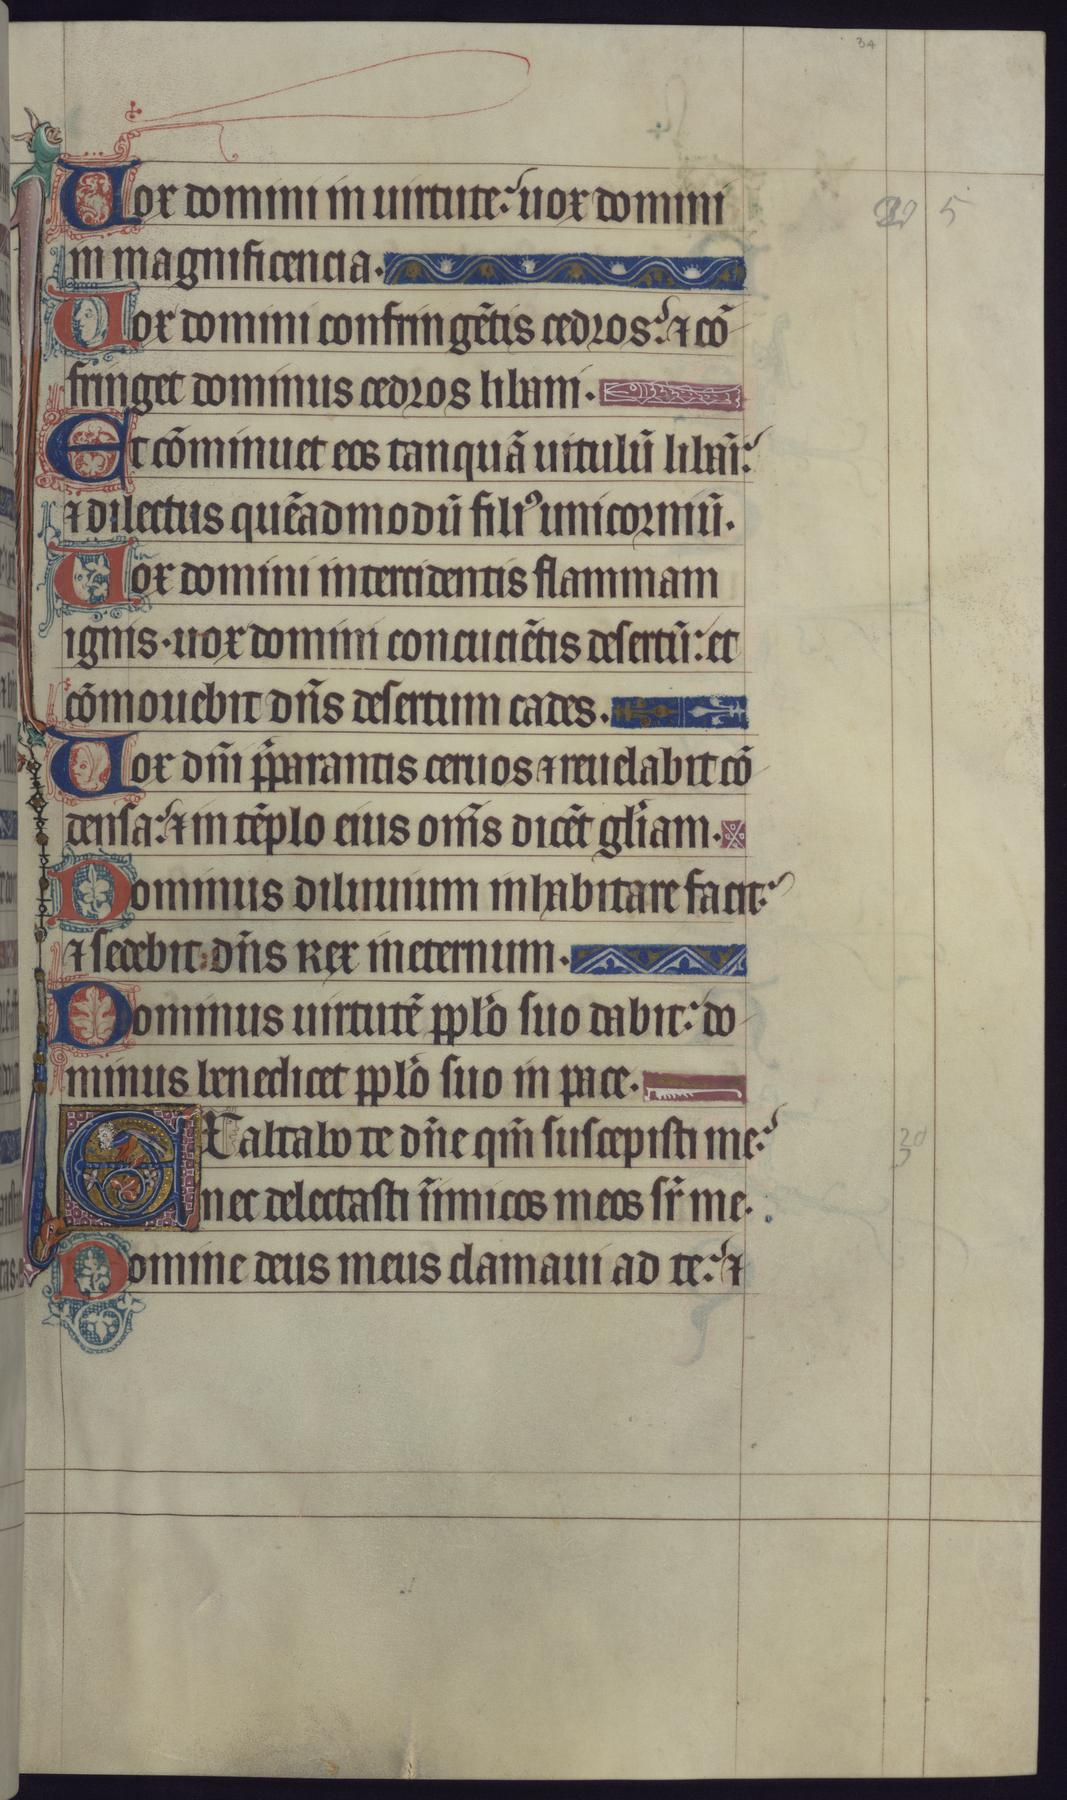 34
Uox domini in uirtute: uox domini
in magnificencia.
Uox domini confringe᷑tis cedros: ⁊ cõ
fringet dominus cedros libani.
Et cõminuet eos tanquã uitulũ libañi:
⁊ dilectus quẽadmodũ filiꝰ unicorniũ.
Uox domini intercidentis flammam
ignis. uox domini concuciẽtis desertũ: et
cõmouebit dñs desertum cades.
Uox dñi p̃parantis ceruos ⁊ reuelabit cõ
densa: ⁊ in tẽplo eius om̃s dicẽt gl̃iam.
Dominus diluuium inhabitare facit:
⁊ sedebit dñs Rex in eternum.
Dominus uirtutẽ ppl̃o suo dabit: do
minus benedicet ppl̃o suo in pace.
Exaltabo te dñe qm̃ suscepisti me:
nec delectasti inimicos meos sr̃ me.
Domine deus meus clamaui ad te: ⁊